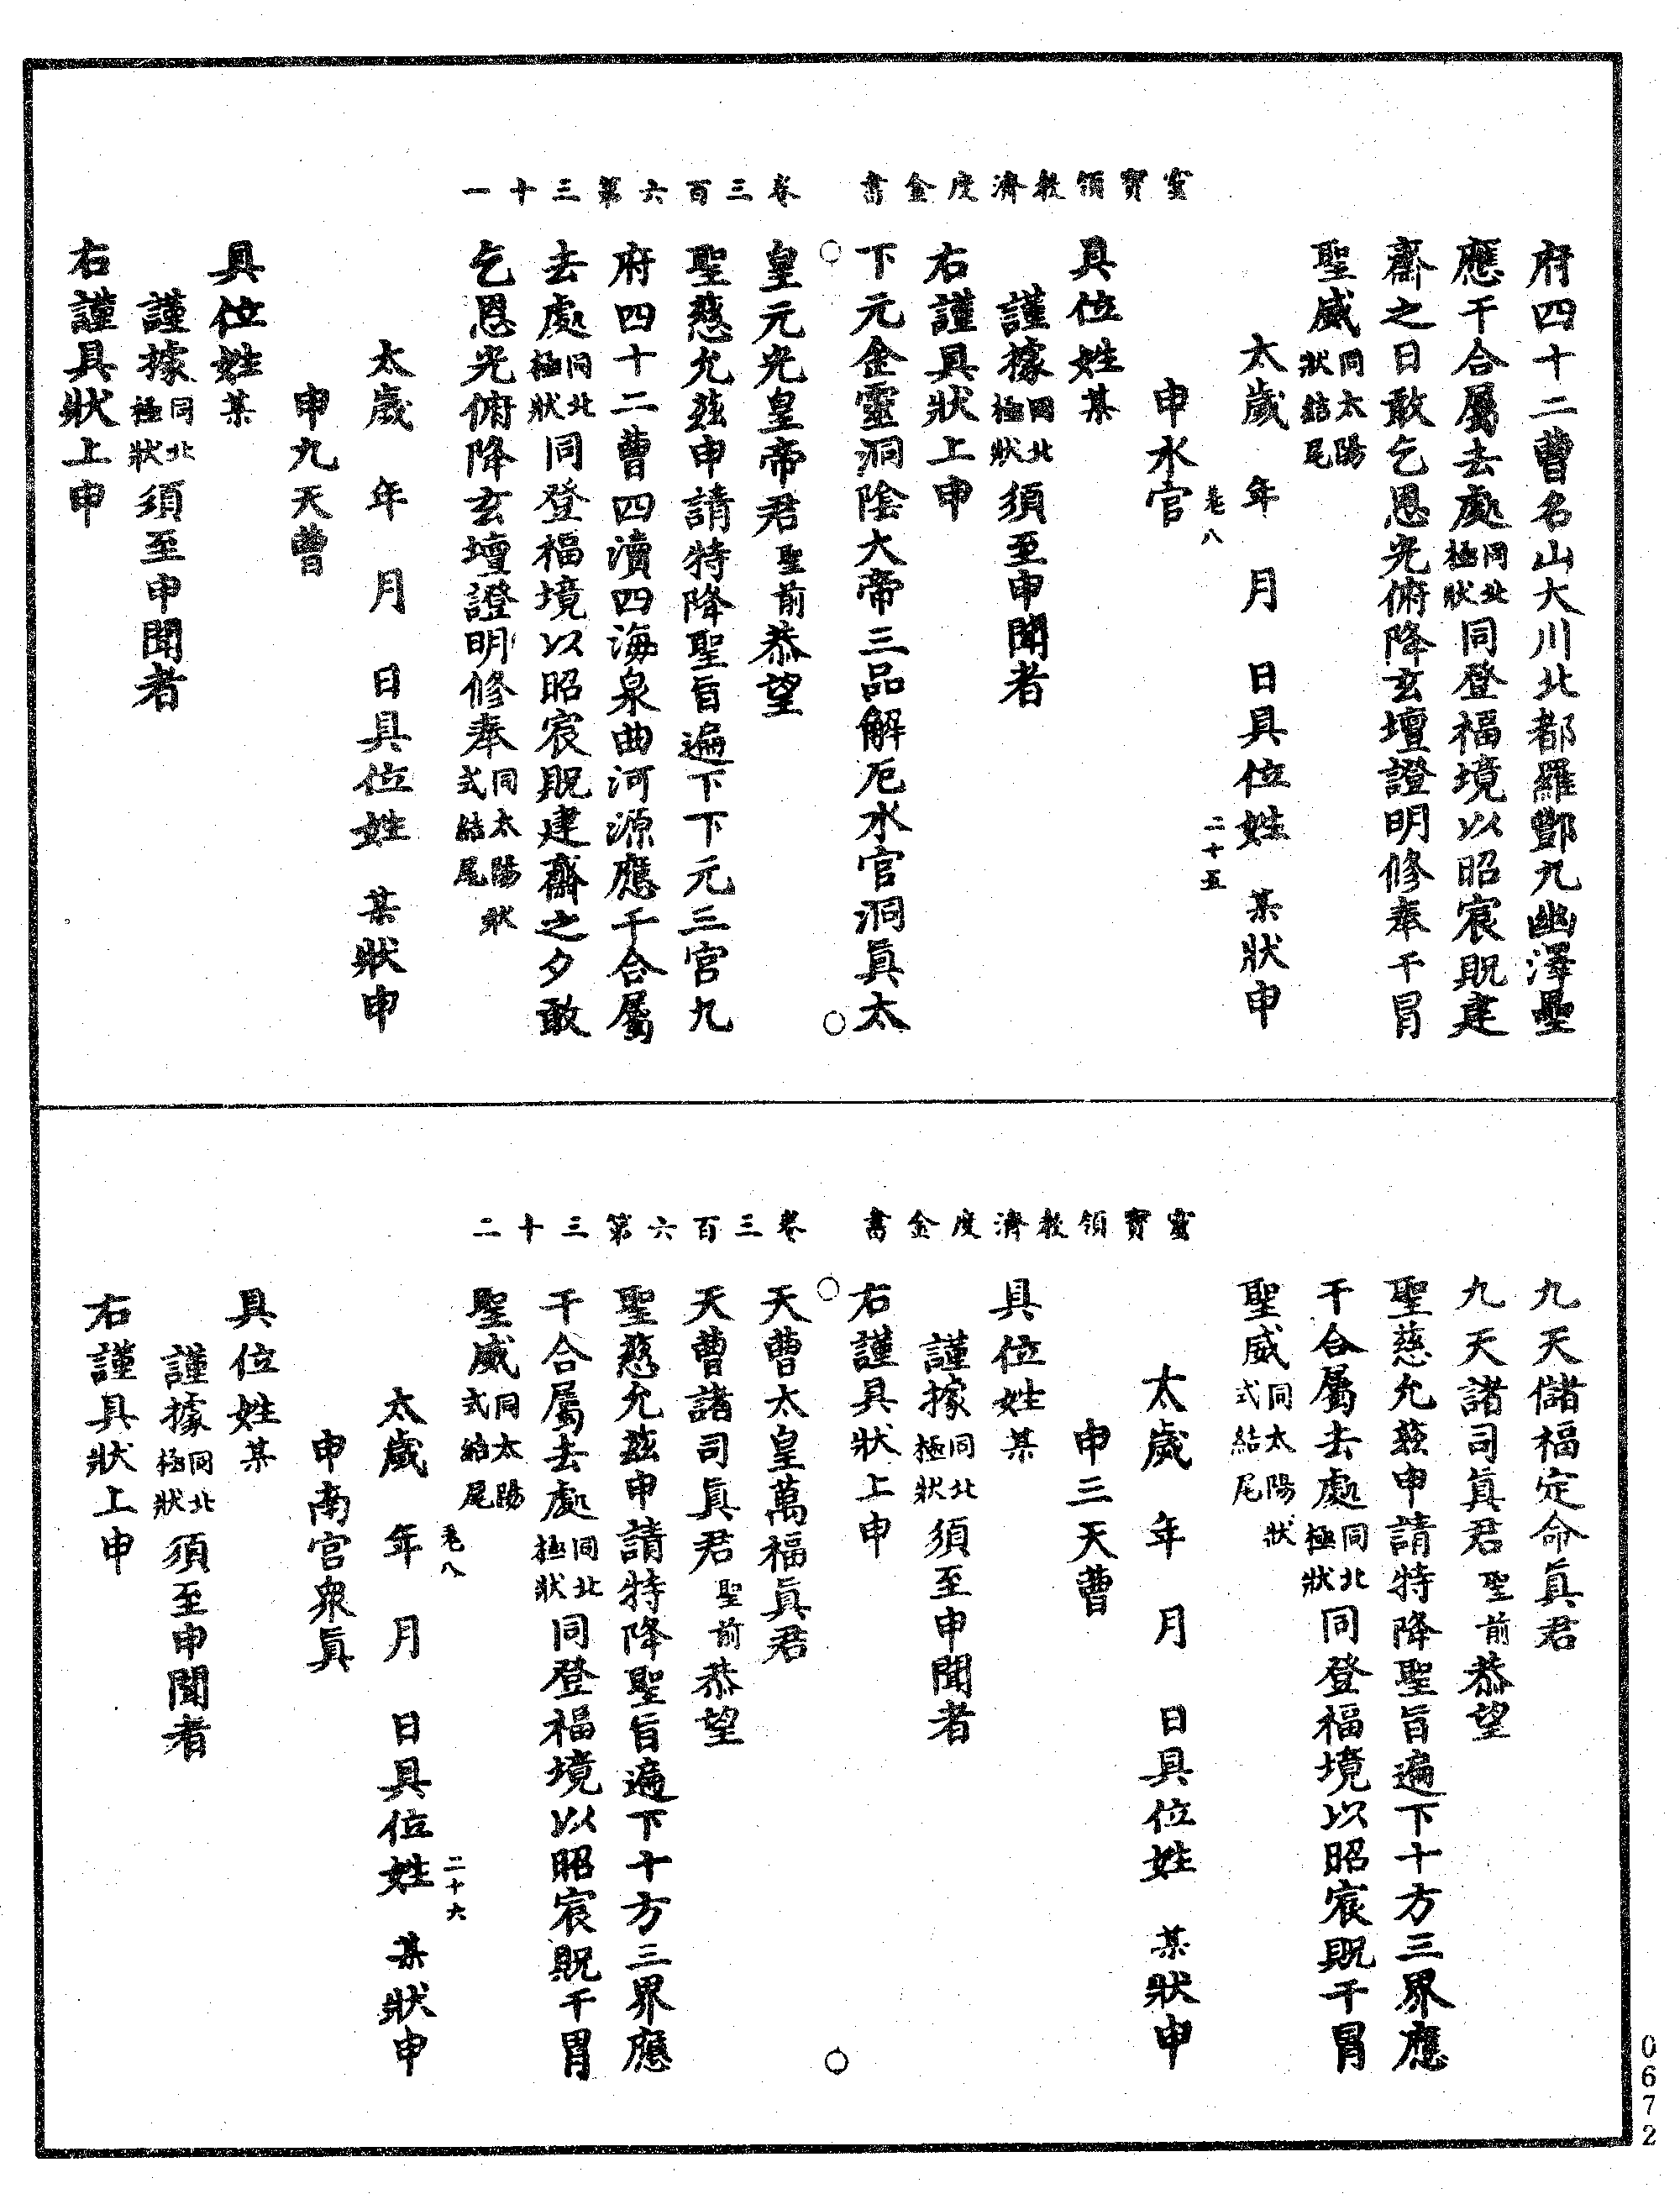 靈寶領教濟度金書　卷三百六第三十一
府四十二曹名山大川北都羅酆九幽澤壘
應干合屬去處同北極狀同登福境以昭宸貺建
齋之日敢乞恩光俯降玄壇證明修奉干冒
聖威同太陽狀結尾
太歲　年　月　日具位姓　某狀申
卷八　二十五
申水官
具位姓某
謹據同北極狀須至申聞者
右謹具狀上申
下元金靈洞陰大帝三品解厄水官洞眞太
皇元光皇帝君聖前恭望
聖慈允茲申請特降聖旨遍下下元三官九
府四十二曹四瀆四海泉曲河源應干合屬
去處同北極狀同登福境以昭宸貺建齋之夕敢
乞恩光俯降玄壇證明修奉同太陽狀式結尾
太歲　年　月　日具位姓　某狀申
申九天曹
具位姓某
謹據同北極狀須至申聞者
右謹具狀上申
靈寶領教濟度金書　卷三百六第三十二
九天儲福定命眞君
九天諸司眞君聖前恭望
聖慈允茲申請特降聖旨遍下十方三界應
干合屬去處同北極狀同登福境以昭宸貺干冒
聖威同太陽狀式結尾
太歲　年　月　日具位姓　某狀申
申三天曹
具位姓某
謹據同北極狀須至申聞者
右謹具狀上申
天曹太皇萬福眞君
天曹諸司眞君聖前恭望
聖慈允茲申請特降聖旨遍下十方三界應
干合屬去處同北極狀同登福境以昭宸貺干冒
聖威同太陽式結尾
卷八　二十六
太歲　年　月　日具位姓　某狀申
申南宮衆眞
具位姓某
謹據同北極狀須至申聞者
右謹具狀上申
0672